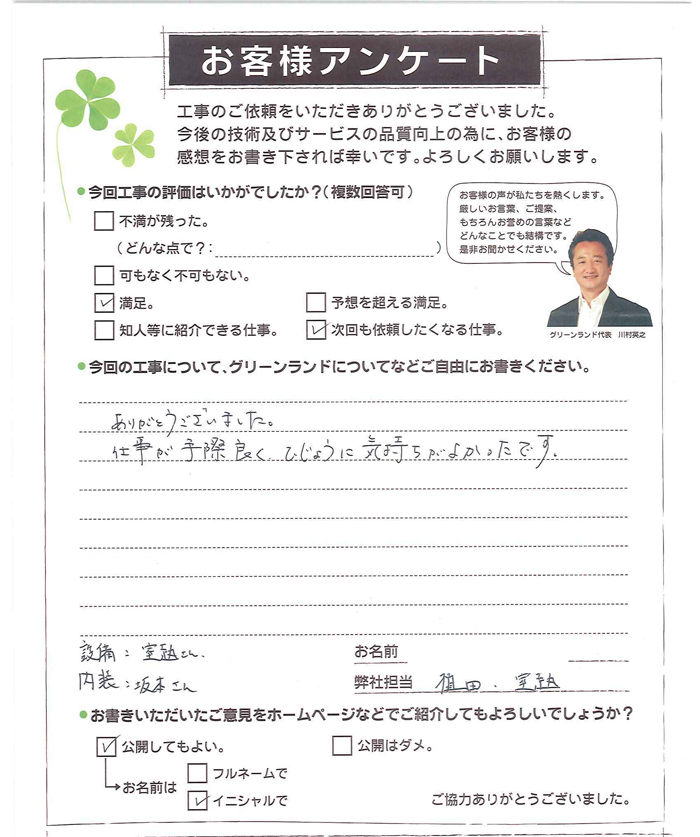 お客様アンケート
工事のご依頼をいただきありがとうございました。
今後の技術及びサービスの品質向上の為に、お客様の
感想をお書き下されば幸いです。よろしくお願いします。
●今回工事の評価はいかがでしたか？（複数回答可）
□不満が残った。
（どんな点で？：　　　）
□可もなく不可もない。
☑満足。　□予想を超える満足。
□知人等に紹介できる仕事。　☑次回も依頼したくなる仕事。
お客様の声が私たちを熱くします。
厳しいお言葉、ご提案、
もちろんお誉めの言葉など
どんなことでも結構です。
是非お聞かせください。
グリーンランド代表　川村英之
●今回の工事について、グリーンランドについてなどご自由にお書きください。
ありがとうございました。
仕事が手際良く、ひじょうに気持ちがよかったです。
設備：室さん.　お名前
内装：坂本さん　弊社担当　植田．室
●お書きいただいたご意見をホームページなどでご紹介してもよろしいでしょうか？
☑公開してもよい。　□公開はダメ。
お名前は　□フルネームで
☑イニシャルで　ご協力ありがとうございました。